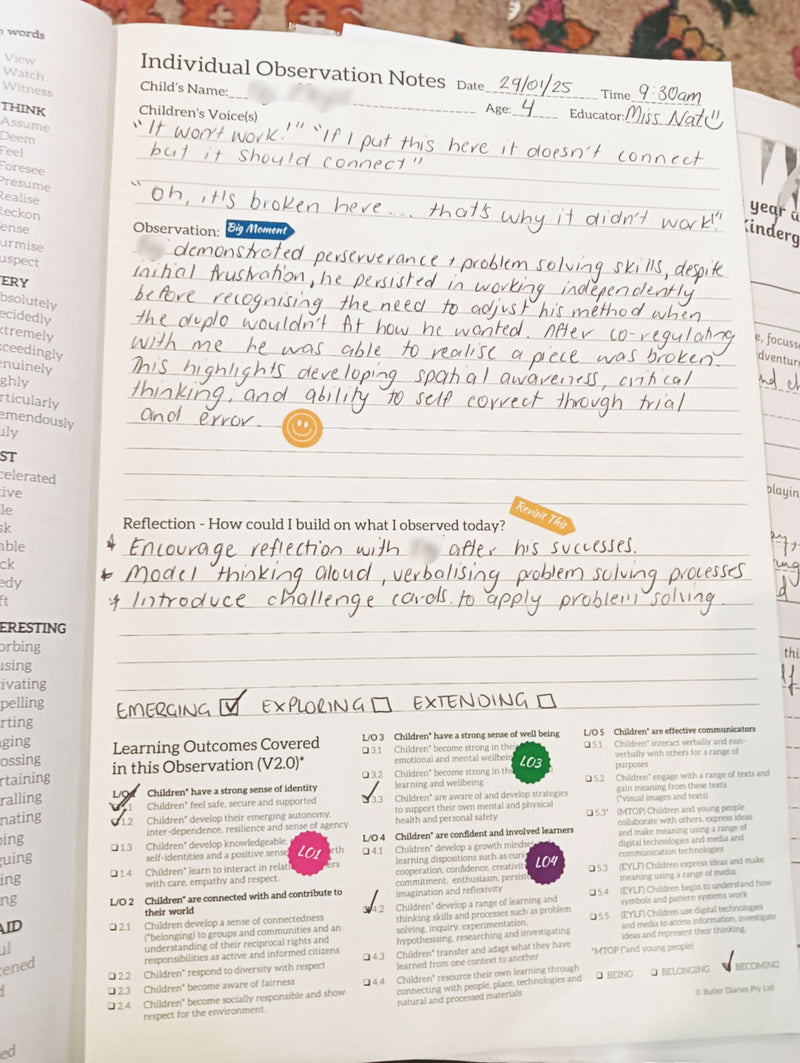 words
View
Watch
Witness
THINK
Assume
Deem
Feel
Foresee
Presume
Realise
Reckon
ense
urmise
uspect
ERY
bsolutely
ecidedly
xtremely
xceedingly
enuinely
ghly
rticularly
emendously
uly
ST
celerated
tive
le
sk
able
ck
edy
ft
ERESTING
orbing
using
ivating
pelling
rting
aging
ossing
rtaining
ralling
nating
ing
guing
ing
ng
AID
ul
tened
d
ed
Individual Observation Notes Date 29/01/25 Time 9:30am
Child's Name: Age: 4 Educator: Miss Nat
Children's Voice(s)
"It won't work!" "If I put this here it doesn't connect
but it should connect"
"Oh, it's broken here... that's why it didn't work!"
Observation: Big Moment
demonstrated perserverance + problem solving skills, despite
initial frustration, he persisted in working independently
before recognising the need to adjust his method when
the duplo wouldn't fit how he wanted. After co-regulating
with me he was able to realise a piece was broken.
This highlights developing spatial awareness, critical
thinking, and ability to self correct through trial
and error.
Reflection - How could I build on what I observed today? Revisit This
Encourage reflection with after his successes.
Model thinking aloud, verbalising problem solving processes
Introduce challenge cards to apply problem solving.
EMERGING EXPLORING EXTENDING
Learning Outcomes Covered
in this Observation (V2.0)*
L/O1 Children* have a strong sense of identity
1.1 Children* feel safe, secure and supported
1.2 Children* develop their emerging autonomy,
inter-dependence, resilience and sense of agency
1.3 Children* develop knowledgeable,
self-identities and a positive sense rth
LO1
1.4 Children* learn to interact in relati ers
with care, empathy and respect.
L/O 2 Children* are connected with and contribute to
their world
2.1 Children develop a sense of connectedness
(*belonging) to groups and communities and an
understanding of their reciprocal rights and
responsibilities as active and informed citizens
2.2 Children* respond to diversity with respect
2.3 Children* become aware of fairness
2.4 Children* become socially responsible and show
respect for the environment.
L/O 3 Children* have a strong sense of well being
3.1 Children* become strong in their
emotional and mental wellbein
LO3
3.2 Children* become strong in the
learning and wellbeing
3.3 Children* are aware of and develop strategies
to support their own mental and physical
health and personal safety
L/O 4 Children* are confident and involved learners
4.1 Children* develop a growth mindse
learning dispositions such as curi
cooperation, confidence, creativit
commitment, enthusiasm, persist
imagination and reflexivity
LO4
4.2 Children* develop a range of learning and
thinking skills and processes such as problem
solving, inquiry, experimentation,
hypothesising, researching and investigating
4.3 Children* transfer and adapt what they have
learned from one context to another
4.4 Children* resource their own learning through
connecting with people, place, technologies and
natural and processed materials
L/O 5 Children* are effective communicators
5.1 Children* interact verbally and non-
verbally with others for a range of
purposes
5.2 Children* engage with a range of texts and
gain meaning from these texts
(*visual images and texts)
5.3* (MTOP) Children and young people
collaborate with others, express ideas
and make meaning using a range of
digital technologies and media and
communication technologies
5.3 (EYLF) Children express ideas and make
meaning using a range of media.
5.4 (EYLF) Children begin to understand how
symbols and pattern systems work
5.5 (EYLF) Children use digital technologies
and media to access information, investigate
ideas and represent their thinking.
*MTOP (*and young people)
BEING BELONGING BECOMING
© Butler Diaries Pty Ltd
year a
Kinderg
e, focuss
dventure
nd ch
playin
thi